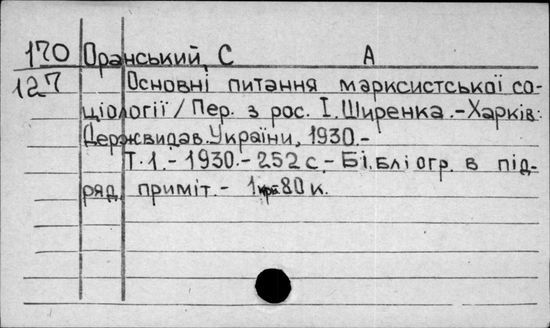 170 Оранський, С А
127 Основні питання марксистської со-
ціології / Пер. з рос. І. Ширенка. - Харків:
Держвидав. України, 1930. -
Т. 1. - 1930. - 252 с. - Бі.бліогр. в під-
ряд. приміт. - 1 крб 80 к.